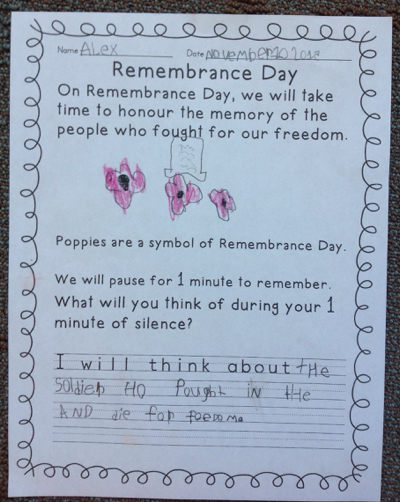 Name Alex Date November 20 2012
Remembrance Day
On Remembrance Day, we will take
time to honour the memory of the
people who fought for our freedom.
Poppies are a symbol of Remembrance Day.
We will pause for 1 minute to remember.
What will you think of during your 1
minute of silence?
I will think about the
Soldier Ho Fought in the
AND die for feedome